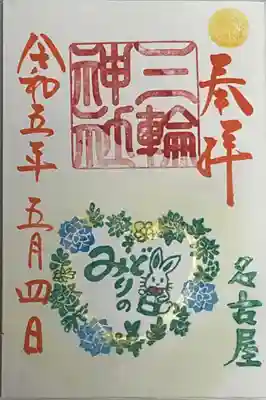 奉拝
三輪
神社
令和五年 五月四日
みどりの
名古屋